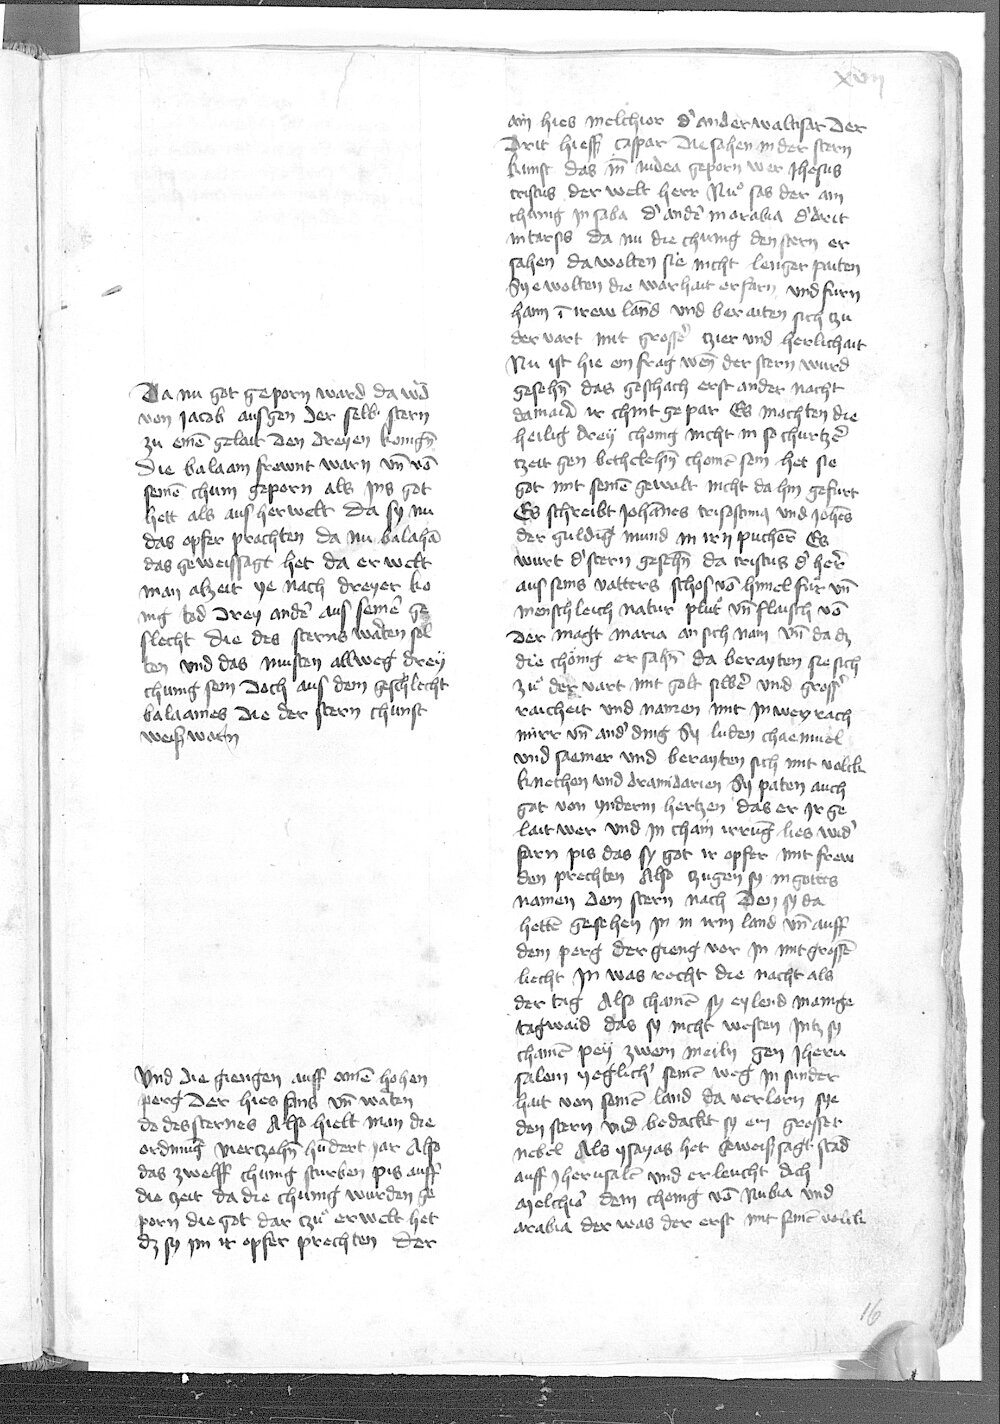 xvij
Da nu got geporn ward da wᷣd
von Jacob ausgen der selb stern
zu einē gelait den dreyen konigñ
die balaam frewnt warn vñ võ
seinē chum geporn als jns got
hett als aus herwelt Da sy nu
das opfer prachten da nu balahā
das geweissagt het da er welt
man alzeit ye nach dreyer ko
nig tod drey andᷣ aus seinē ge
slecht die des sterns wartē sol
ten vnd das musten allweg drey
chunig sein Doch aus dem geschlecht
balaames Die der stern chunst
weiss warn
Vnd die giengen auff ainē hohen
perg Der hies vñ waten
do des sternes Also hielt man die
ordnung vierczehñ hūdert jar Also
das zwelff chunig sturben pis auff
die czeit da die chunig wurden ge
porn die got dar czu erwelt het
dz sy jm ir opfer prechten Der
ain hies melchior dᷣ ander waltisar Der
Drit hiess caspar Die sahen in der stern
kunst das in Judea geporn wer Jhesus
cristus der welt herr Nu sas der ain
chunig in saba dᷣ andᷣ in arabia dᷣ drit
in tarsis da nu die chunig den stern er
sahen da wolten sie nicht lenger peiten
Sye wolten die warhait erfarn vnd furn
haim ī irew land vnd beraiten sich czu
der vart mit grossᷣ czier vnd herlichait
Nu ist hie ein frag wen der stern wurd
gesehñ das geschach erst an der nacht
da maria ir chint gepar Es mochten die
heilig drey chonig nicht in so churtzᷣ
czeit gen bethelehē chomē sein het sie
got mit seinē gewalt nicht da hin gefurt
Es schreibt johānes crisostimꝯ vnd johēs
der guldig mund in irn puchern Es
wurt dᷣ stern gesehñ da cristus dᷣ herᷣ
aus seins vatters schos võ himel fur vñ
menschleich natur plut vñ flaisch võ
Der magt maria an sich nam vñ da dz
die chönig ersahñ da berayten sie sich
zu der vart mit golt silbᷣ vnd grossᷣ
raicheit vnd namen mit in weyrach
mirr vñ andᷣ ding Sy luden chaemuel
vnd saemer vnd berayten sich mit volck
knechten vnd dramidarien Sy paten auch
got von ynderm hertzen das er ir ge
lait wer vnd in chain irrung lies widᷣ
farn pis das sy got ir opfer mit frew
den prechten Also zugen sy in gottes
namen dem stern nach Den sy da
hettē gesehen in in irm land vñ auff
dem perg der gieng vor in mit grossē
liecht in was recht die nacht als
der tag Also chamē sy eylend mainge
tagwaid das sy nicht westen intz sy
chamē pey zwein meiln gen Jheru
salem yeglichᷣ seinē weg in sunder
hait von seinē land da verlorn sye
den stern vnd bedackt sy ein grosser
nebel Als ysayas het geweissagt stad
auff Jherusalē vnd erleucht dich
Melchiᷣ dem chonig võ Nubia vnd
arabia der was der erst mit seinē volck
16